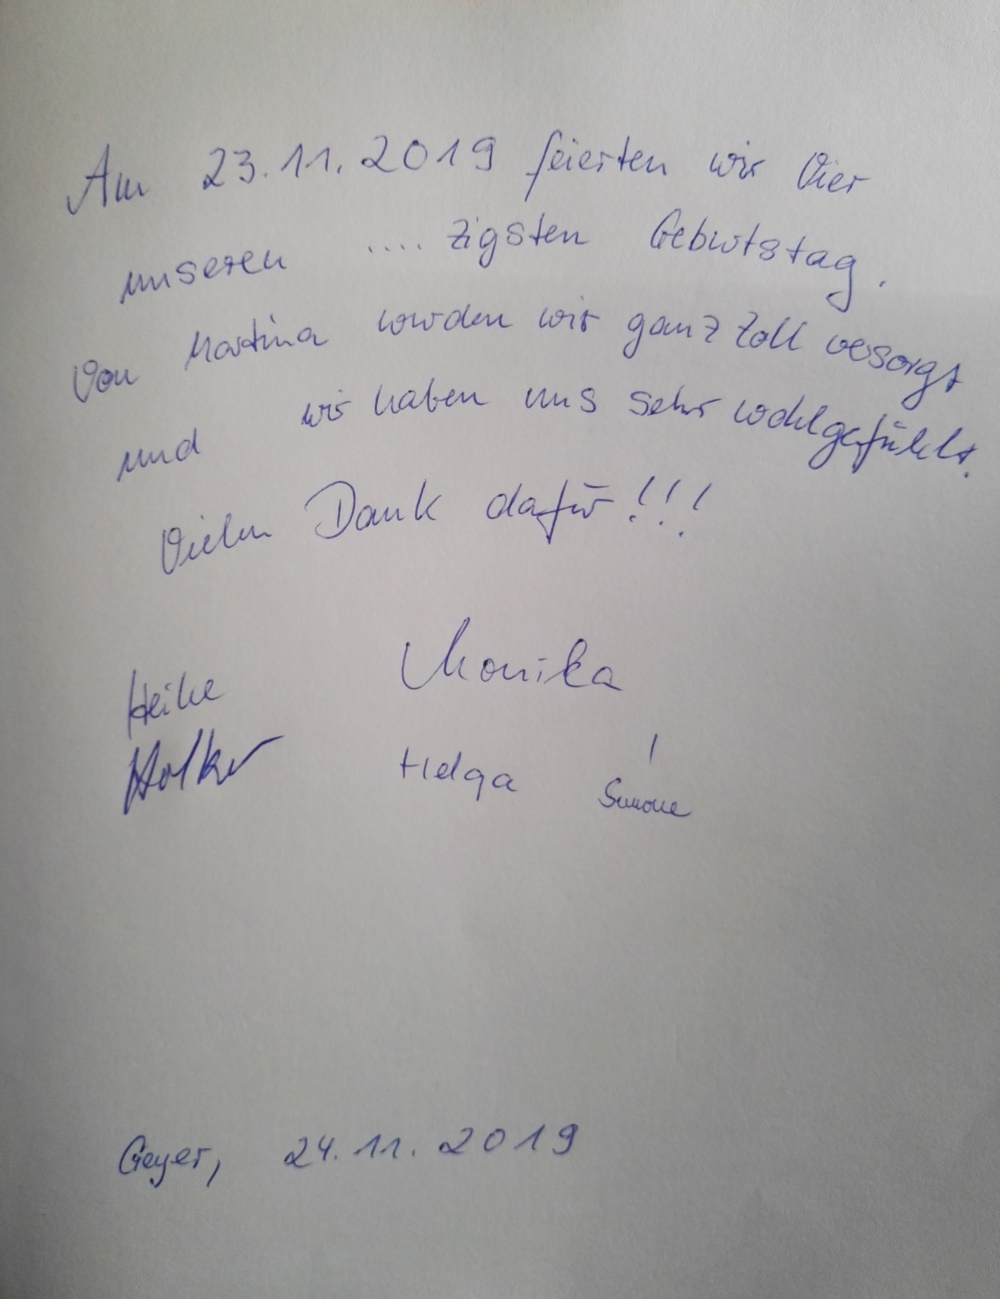 Am 23.11.2019 feierten wir Vier
unseren .... zigsten Geburtstag.
Von Martina wurden wir ganz toll versorgt
und wir haben uns sehr wohlgefühlt.
Vielen Dank dafür!!!
Monika
Heike
Helga Simone
Geyer, 24.11.2019